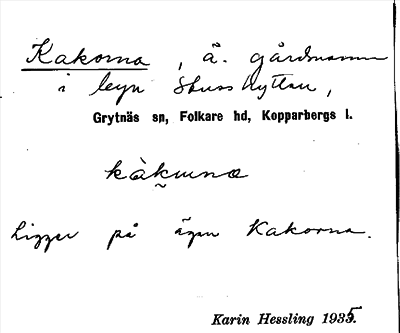 Kakorna, ä. gårdsnamn
i byn Stuss hyttan,
Grytnäs sn, Folkare hd, Kopparbergs l.
Ligger på ägan Kakorna.
Karin Hessling 1935.